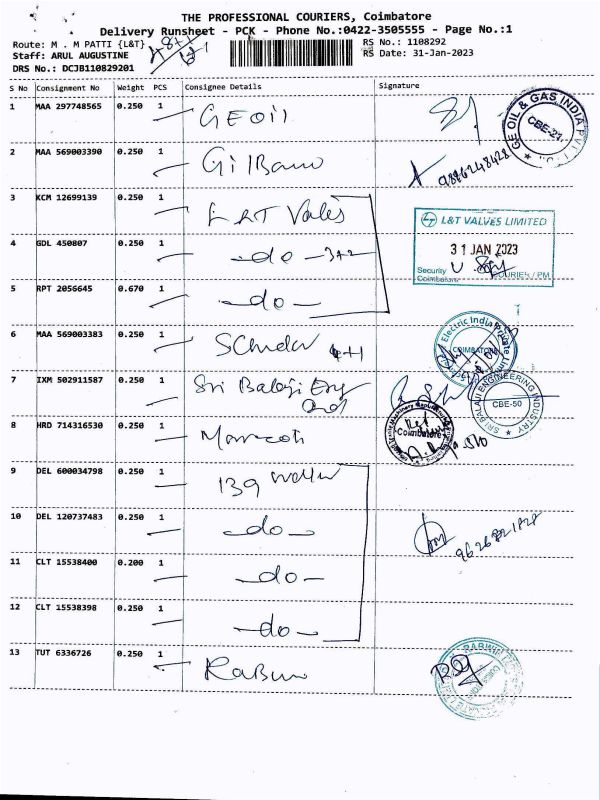 THE PROFESSIONAL COURIERS, Coimbatore
Delivery Runsheet - PCK - Phone No.:0422-3505555 - Page No.:1
Route: M . M PATTI {L&T} RS No.: 1108292
Staff: ARUL AUGUSTINE RS Date: 31-Jan-2023
DRS No.: DCJB110829201
S No Consignment No Weight PCS Consignee Details Signature
1 MAA 297748565 0.250 1 GEOil
GE OIL & GAS INDIA PVT CBE-21
2 MAA 569003390 0.250 1
9886248428
3 KCM 12699139 0.250 1 L&T Valves
L&T VALVES LIMITED
4 GDL 450807 0.250 1 -do- 3+2
31 JAN 2023
Security
Coimbatore COURIER / PM
5 RPT 2056645 0.670 1 -do-
6 MAA 569003383 0.250 1
Electric India Private Limited
COIMBATORE
7 IXM 502911587 0.250 1 Sri Balaji Eng
SRI BALAJI ENGINEERING INDUSTRY CBE-50
8 HRD 714316530 0.250 1
Coimbatore
9 DEL 600034798 0.250 1 139
10 DEL 120737483 0.250 1 -do-
11 CLT 15538400 0.200 1 -do-
12 CLT 15538398 0.250 1 -do-
13 TUT 6336726 0.250 1